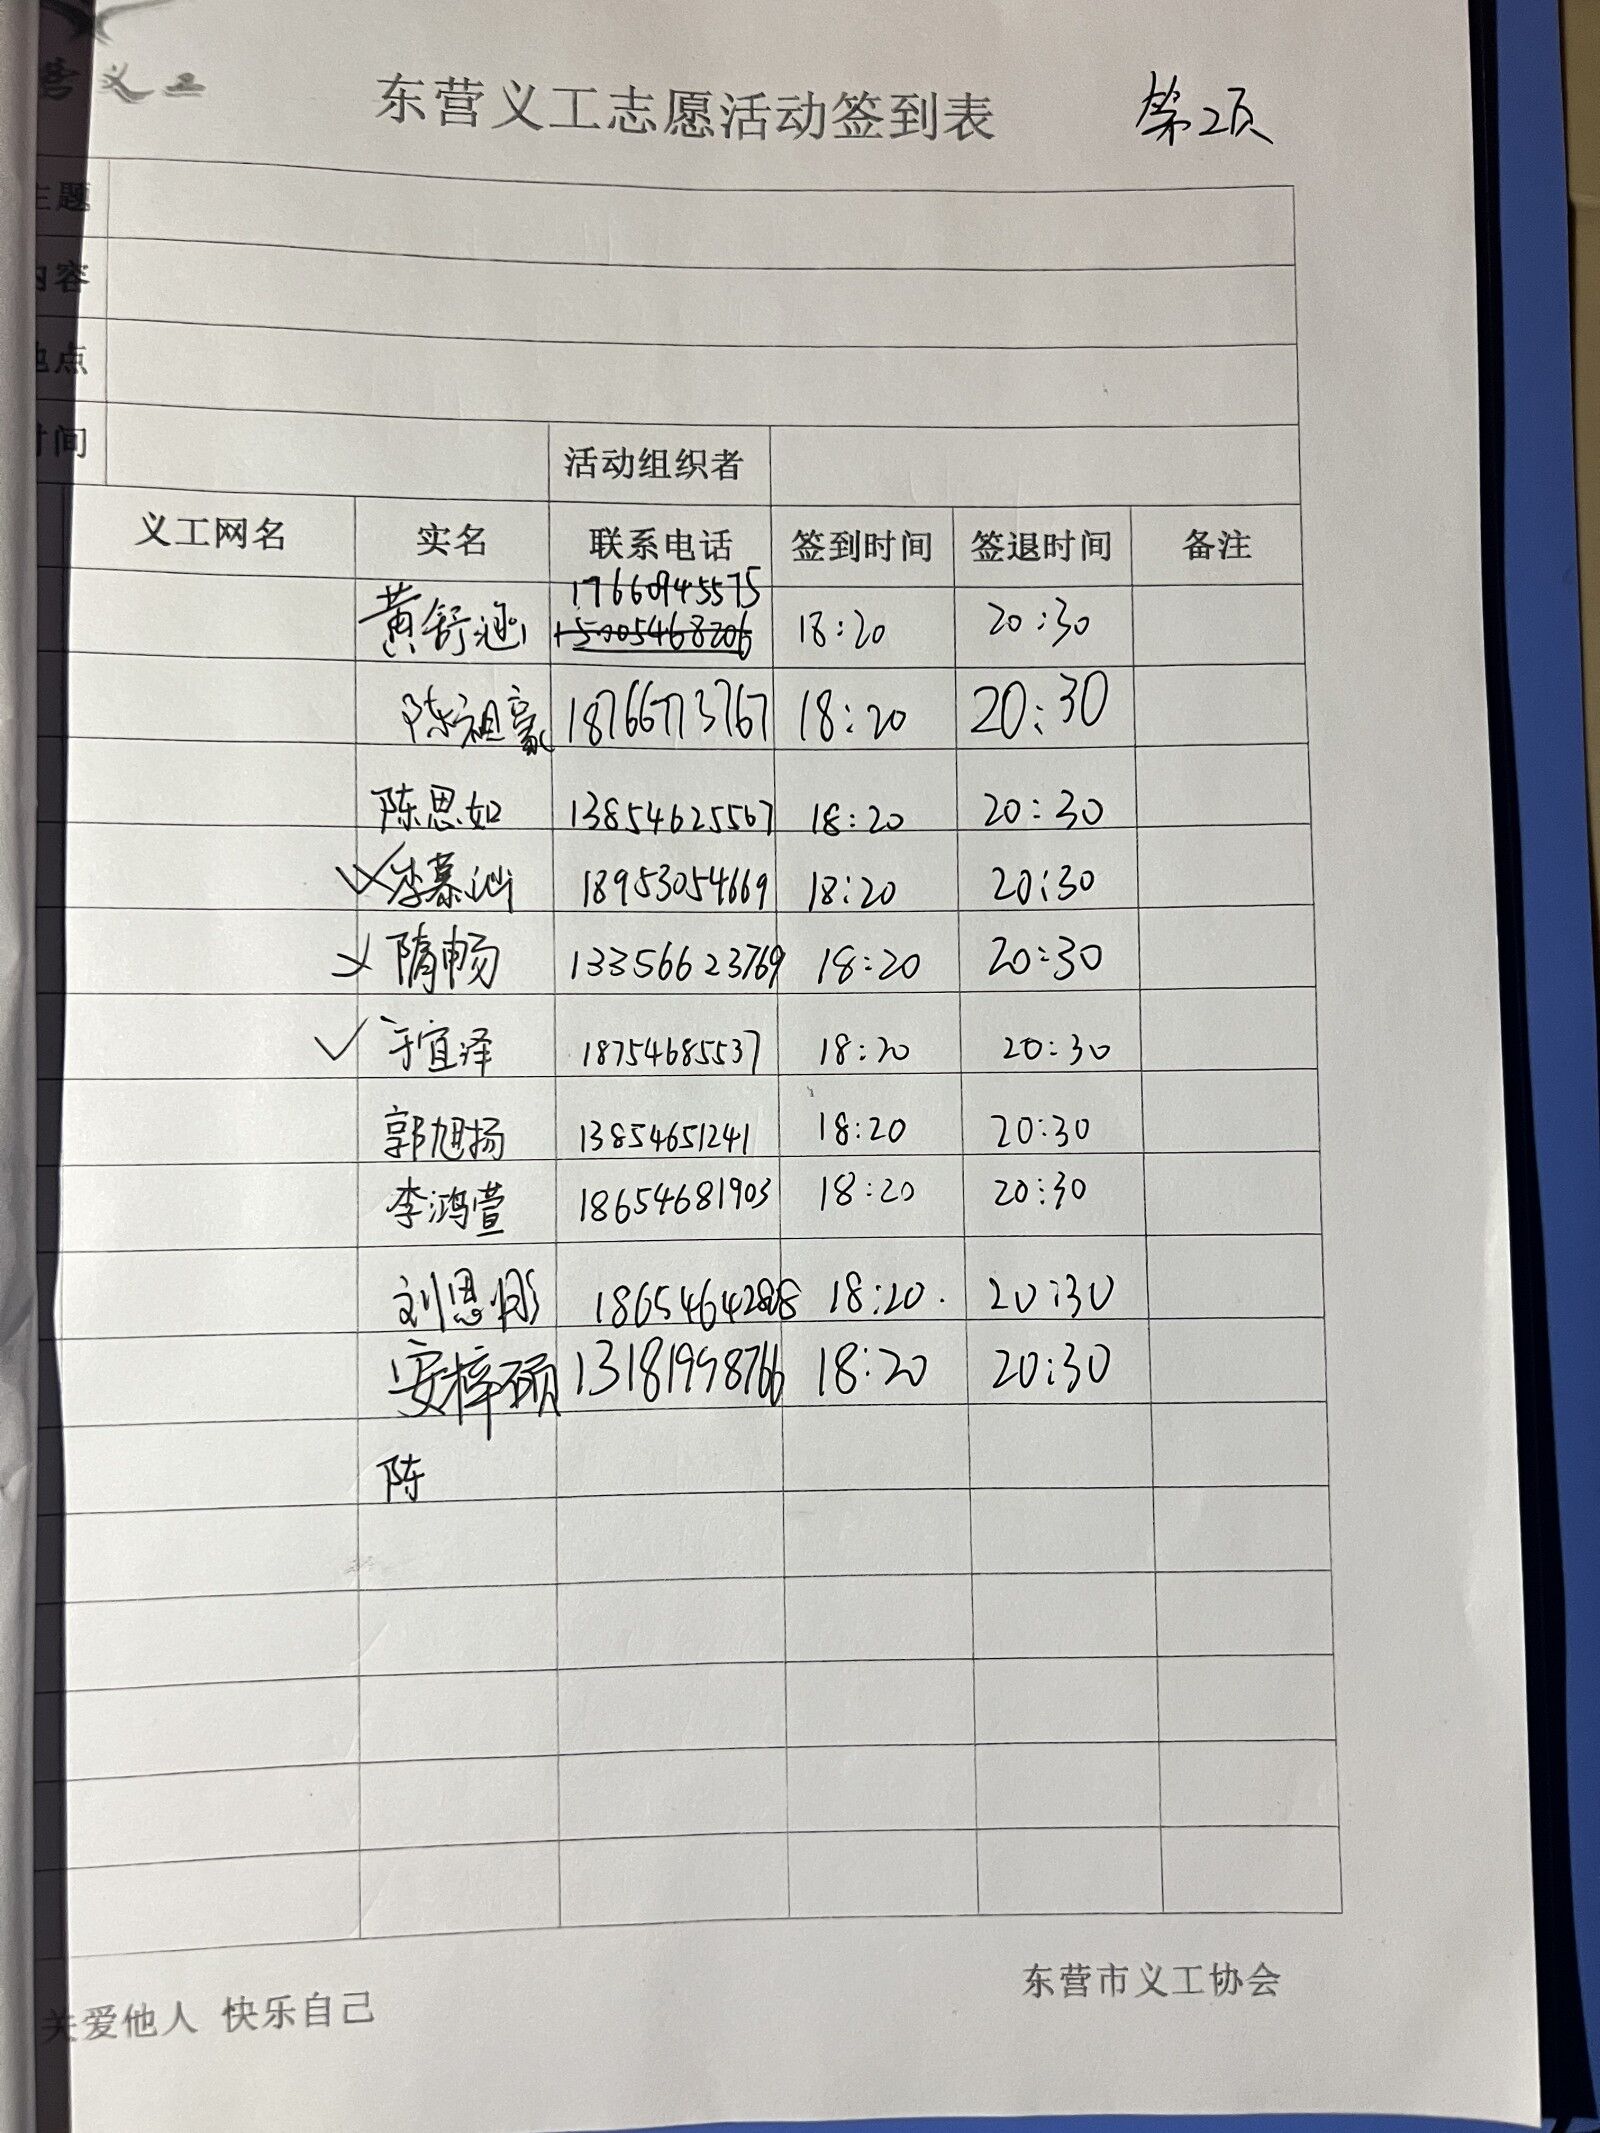 营义工
东营义工志愿活动签到表 第2页
主题
内容
地点
时间 活动组织者
义工网名 实名 联系电话 签到时间 签退时间 备注
17660945575
黄舒涵 15005468206 18:20 20:30
陈祖豪 18766773767 18:20 20:30
陈思如 13854625567 18:20 20:30
李慕汕 18953054669 18:20 20:30
隋畅 13356623769 18:20 20:30
于宜泽 18754685537 18:20 20:30
郭旭扬 13854651241 18:20 20:30
李鸿萱 18654681903 18:20 20:30
刘恩彤 18:20. 20:30
安梓硕 13181998766 18:20 20:30
陈
关爱他人 快乐自己
东营市义工协会